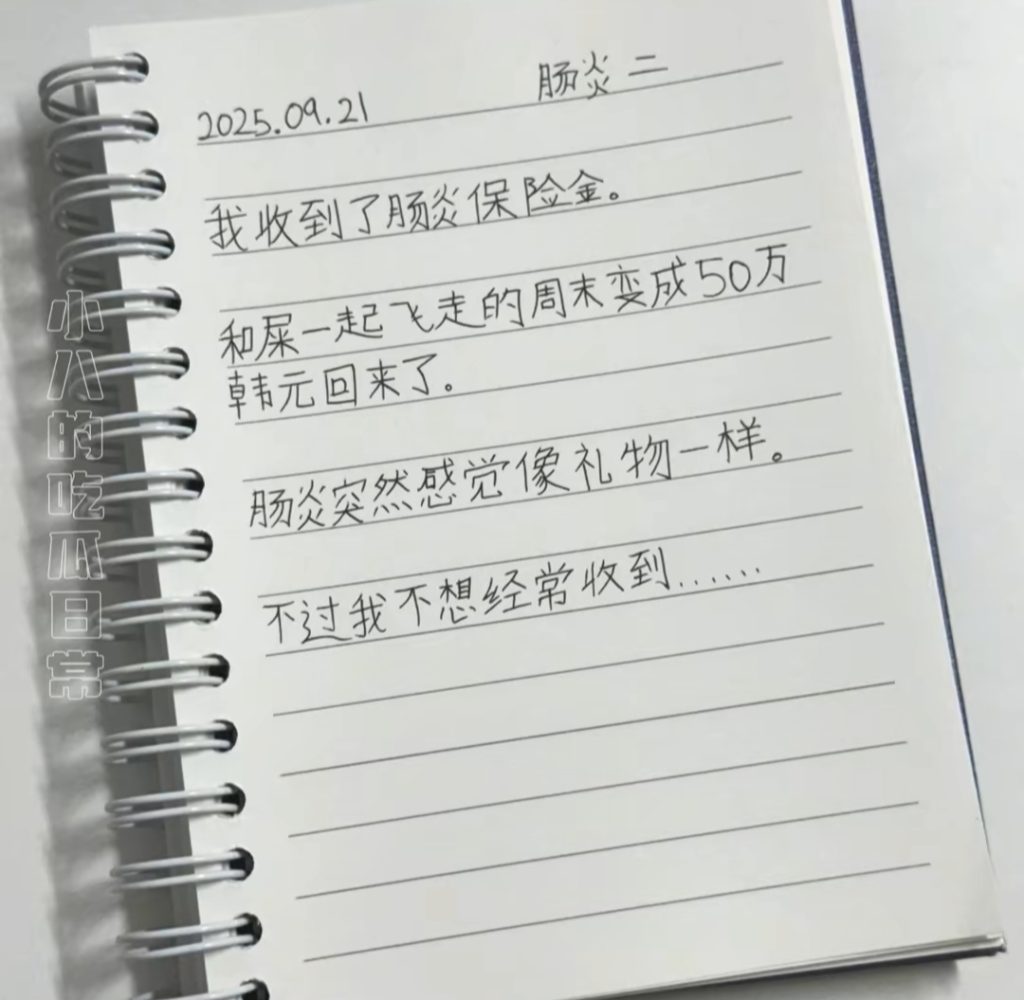 2025.09.21 肠炎 二
我收到了肠炎保险金。
和屎一起飞走的周末变成50万
韩元回来了。
肠炎突然感觉像礼物一样。
不过我不想经常收到......
小八的吃瓜日常